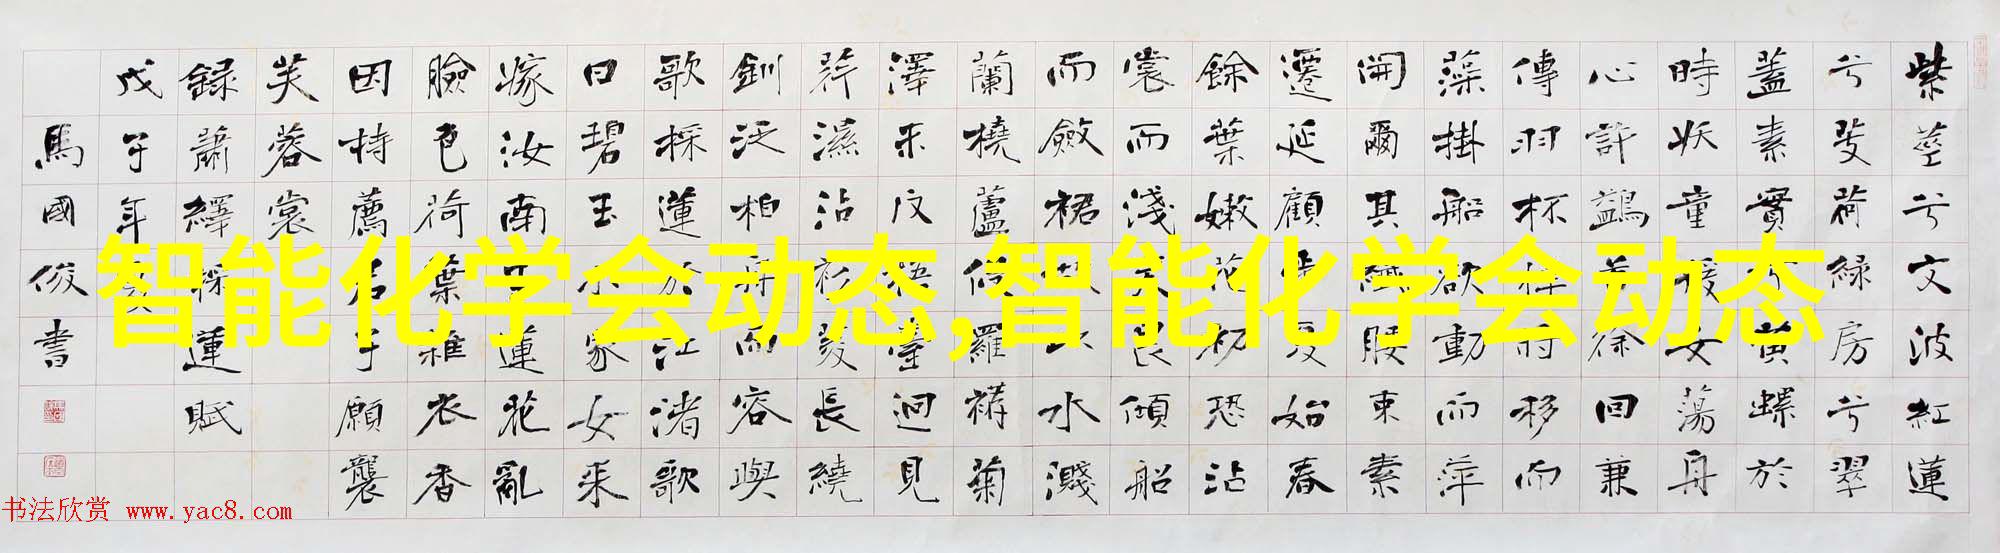 紫莖兮文波紅蓮
兮芰荷綠房兮翠
蓋素實兮黃螺於
時妖童媛女蕩舟
心許鷁首徐回兼
傳羽杯棹將移而
藻掛船欲動而萍
開爾其纖腰束素
遷延顧步夏始春
餘葉嫩花初恐沾
裳而淺笑畏傾船
而斂裾故以水濺
蘭橈蘆侵羅褠菊
澤未反梧臺迥見
荇濕沾衫菱長繞
釧泛柏舟而容與
歌採蓮於江渚歌
曰碧玉小家女来
嫁汝南王蓮花亂
臉色荷葉雜衣香
因持薦君子願襲
芙蓉裳
録蕭繹採蓮賦
戊子年
馬國俊書
智能化学会动态,智能化学会动态
书法欣赏 www.yac8.com